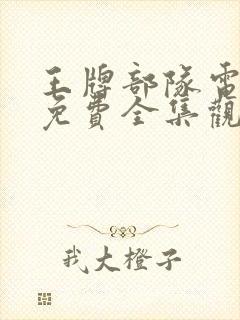 王牌部隊電
免費全集觀
我大橙子